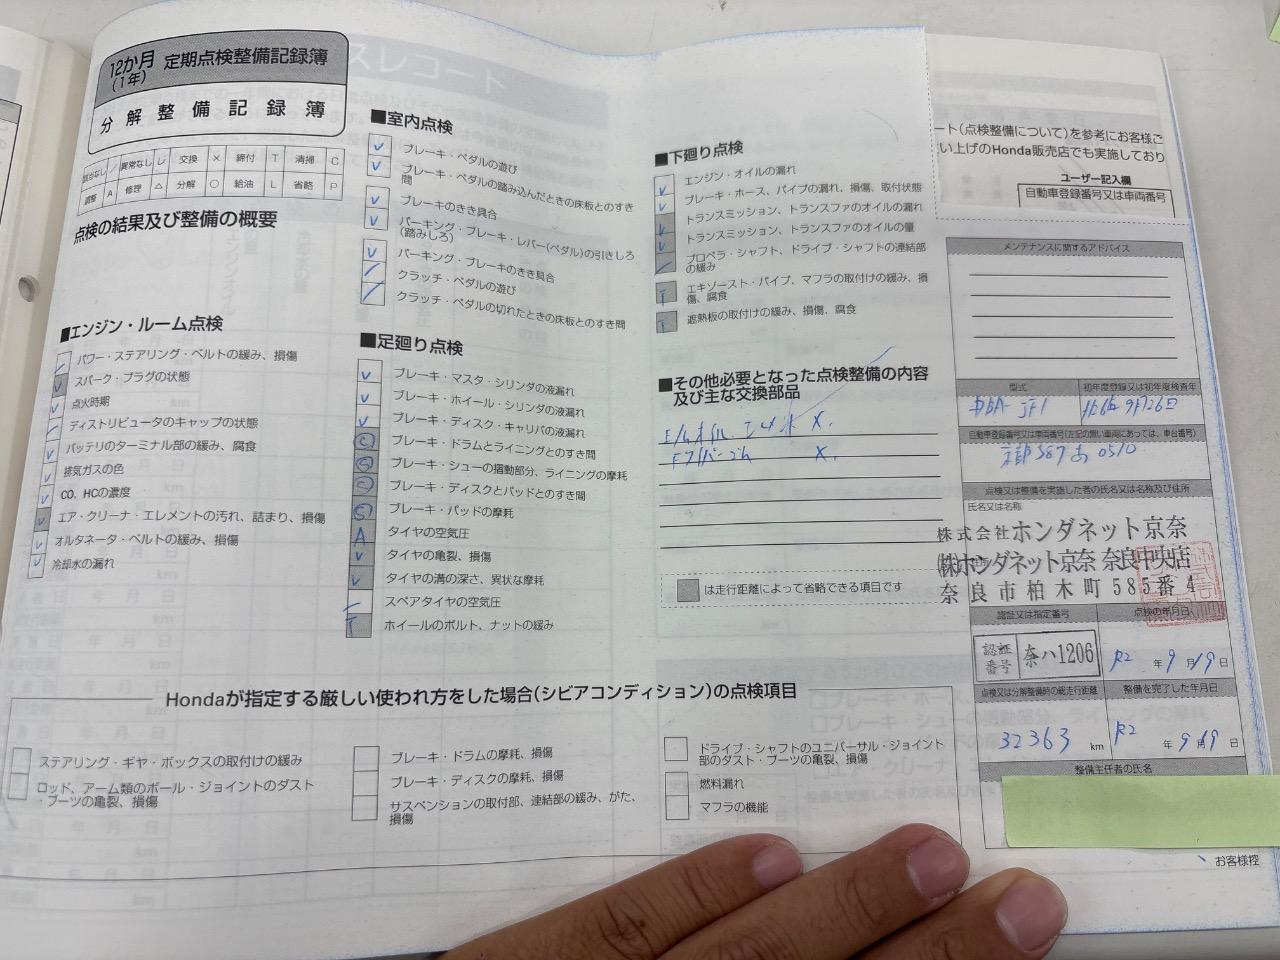 12か月
(1年)
定期点検整備記録簿
分解整備記録簿
該当なし ／ 異常なし レ 交換 × 締付 T 清掃 C
調整 A 修理 △ 分解 ○ 給油 L 省略 P
点検の結果及び整備の概要
■エンジン・ルーム点検
パワー・ステアリング・ベルトの緩み、損傷
スパーク・プラグの状態
点火時期
ディストリビュータのキャップの状態
バッテリのターミナル部の緩み、腐食
排気ガスの色
CO、HCの濃度
エア・クリーナ・エレメントの汚れ、詰まり、損傷
オルタネータ・ベルトの緩み、損傷
冷却水の漏れ
■室内点検
ブレーキ・ペダルの遊び
ブレーキ・ペダルの踏み込んだときの床板とのすき
間
ブレーキのきき具合
パーキング・ブレーキ・レバー(ペダル)の引きしろ
(踏みしろ)
パーキング・ブレーキのきき具合
クラッチ・ペダルの遊び
クラッチ・ペダルの切れたときの床板とのすき間
■足廻り点検
ブレーキ・マスタ・シリンダの液漏れ
ブレーキ・ホイール・シリンダの液漏れ
ブレーキ・ディスク・キャリパの液漏れ
ブレーキ・ドラムとライニングとのすき間
ブレーキ・シューの摺動部分、ライニングの摩耗
ブレーキ・ディスクとパッドとのすき間
ブレーキ・パッドの摩耗
A タイヤの空気圧
タイヤの亀裂、損傷
タイヤの溝の深さ、異状な摩耗
スペアタイヤの空気圧
T ホイールのボルト、ナットの緩み
■下廻り点検
エンジン・オイルの漏れ
ブレーキ・ホース、パイプの漏れ、損傷、取付状態
トランスミッション、トランスファのオイルの漏れ
トランスミッション、トランスファのオイルの量
プロペラ・シャフト、ドライブ・シャフトの連結部
の緩み
T エキゾースト・パイプ、マフラの取付けの緩み、損
傷、腐食
T 遮熱板の取付けの緩み、損傷、腐食
■その他必要となった点検整備の内容
及び主な交換部品
E/gオイル エレメント ×.
Fワイパーゴム ×.
は走行距離によって省略できる項目です
Hondaが指定する厳しい使われ方をした場合(シビアコンディション)の点検項目
ステアリング・ギヤ・ボックスの取付けの緩み
ロッド、アーム類のボール・ジョイントのダスト
・ブーツの亀裂、損傷
ブレーキ・ドラムの摩耗、損傷
ブレーキ・ディスクの摩耗、損傷
サスペンションの取付部、連結部の緩み、がた、
損傷
ドライブ・シャフトのユニバーサル・ジョイント
部のダスト・ブーツの亀裂、損傷
燃料漏れ
マフラの機能
スレコート
ート(点検整備について)を参考にお客様ご
い上げのHonda販売店でも実施しており
ユーザー記入欄
自動車登録番号又は車両番号
メンテナンスに関するアドバイス
型式
初年度登録又は初年度検査年
DBA-JF1
H26年9月26日
自動車登録番号又は車両番号(左記の無い車両にあっては、車台番号)
京都 587 あ 0510
点検又は整備を実施した者の氏名又は名称及び住所
氏名又は名称
株式会社ホンダネット京奈
(株)ホンダネット京奈 奈良中央店
奈良市柏木町585番4
認証又は指定番号
点検の年月日
認証
番号
奈ハ1206
R2年9月19日
点検又は分解整備時の総走行距離
整備を完了した年月日
32363 km
R2年9月19日
整備主任者の氏名
お客様控